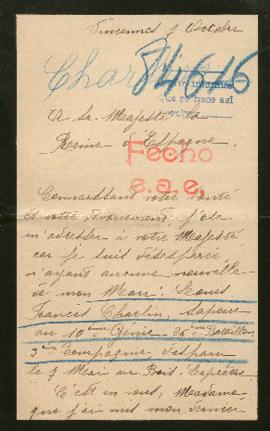 Vincennes 9 Octobre
Charlin
84616
se hace así
A Sa Majesté la
Reine d'Espagne.
Fecho
e.a.e.
Connaissant votre bonté
et votre dévouement j'ose
m'adresser à votre Majesté
car je suis désespérée
n'ayant aucune nouvelle
de mon Mari: Louis
Francis Charlin, Sapeur
au 10ème Génie 26ème Bataillon
3ème Compagnie disparu
le 9 Mai au Bois
C'est en vous, Madame
que j'ai mis mon dernier